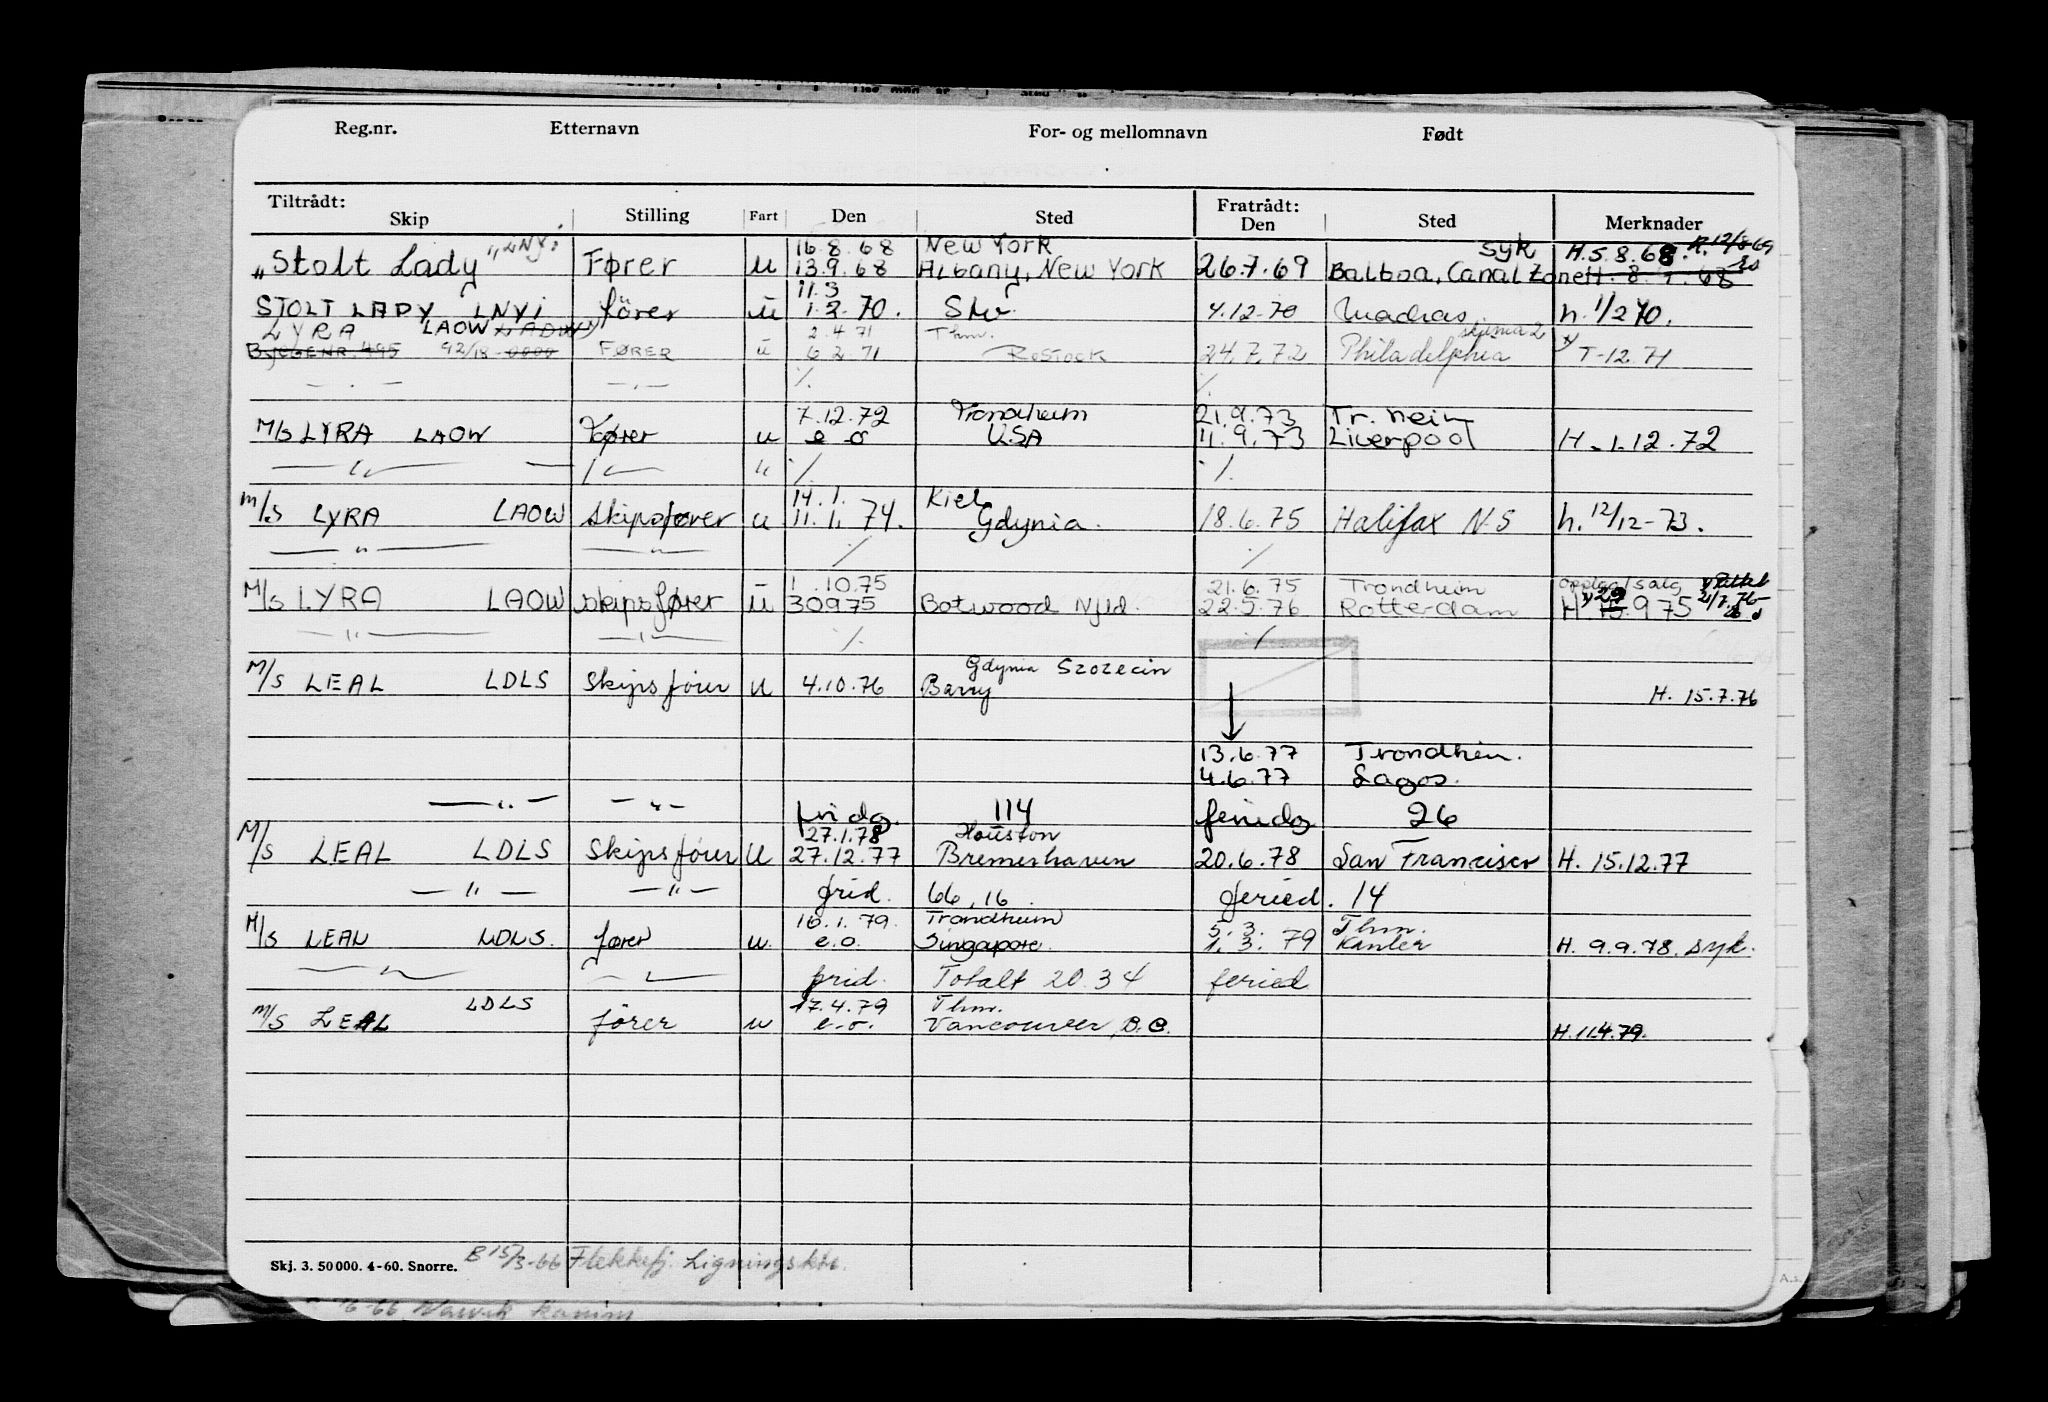 Reg.nr. Etternavn For- og mellomnavn Født
Tiltrådt: Fratrådt:
Skip Stilling Fart Den Sted Den Sted Merknader
"LNYi" 16.8.68 New York syk H.5.8.68. R.12/8-69
"Stolt Lady" Fører u 13.9.68 Albany, New York 26.7.69 Balboa, Canal Zone H. 8.9.68
11.3
STOLT LADY LNYi fører u 1.2.70. 4.12.70 Madras h. 1/2 70.
LYRA LAOW 2.4.71 Thm.
BYGGENR 495 92/18 0000 FØRER u 6.2.71 Rostock 24.7.72 Philadelphia T-12.71
— . — —.— ٪ ٪
7.12.72 Trondheim 21.9.73 Tr.heim
M/S LYRA LAOW Fører u e o USA 11.9.73 Liverpool H. 1.12.72
— " — — " — " ٪ ٪
14.1. Kiel
M/S LYRA LAOW Skipsfører u 11.1.74. Gdynia. 18.6.75 Halifax N.S h. 12/12-73.
— " — — " — ٪ ٪
1.10.75 21.6.75 Trondheim opplag/salg
M/S LYRA LAOW skipsfører u 30975 Botwood Nfld. 22.5.76 Rotterdam H. 29 15.975 2/7.76
— " — — " — ٪ ٪
Gdynia Szczecin
M/S LEAL LDLS Skipsfører u 4.10.76 Barry H. 15.7.76
13.6.77 Trondheim.
4.6.77 Lagos.
— " — — " — frida. 114 ferieda 26
27.1.78 Houston
M/S LEAL LDLS Skipsfører u 27.12.77 Bremerhaven 20.6.78 San Francisco H. 15.12.77
— " — — " — frid. 66,16 feried. 14
16.1.79. Trondheim 5.3. Thm.
M/S LEAL LDLS. fører u. e.o. Singapore. 1.3.79 H. 9.9.78. syk.
— " — — " — frid. Totalt 20.34 feried
LDLS 17.4.79 Thm.
M/S LEAL fører u e.o. Vancouver, B.C. H.11.4.79.
Skj. 3. 50 000. 4-60. Snorre. B 15/3-66 Flekkefj. Ligningsktr.
-66 Narvik